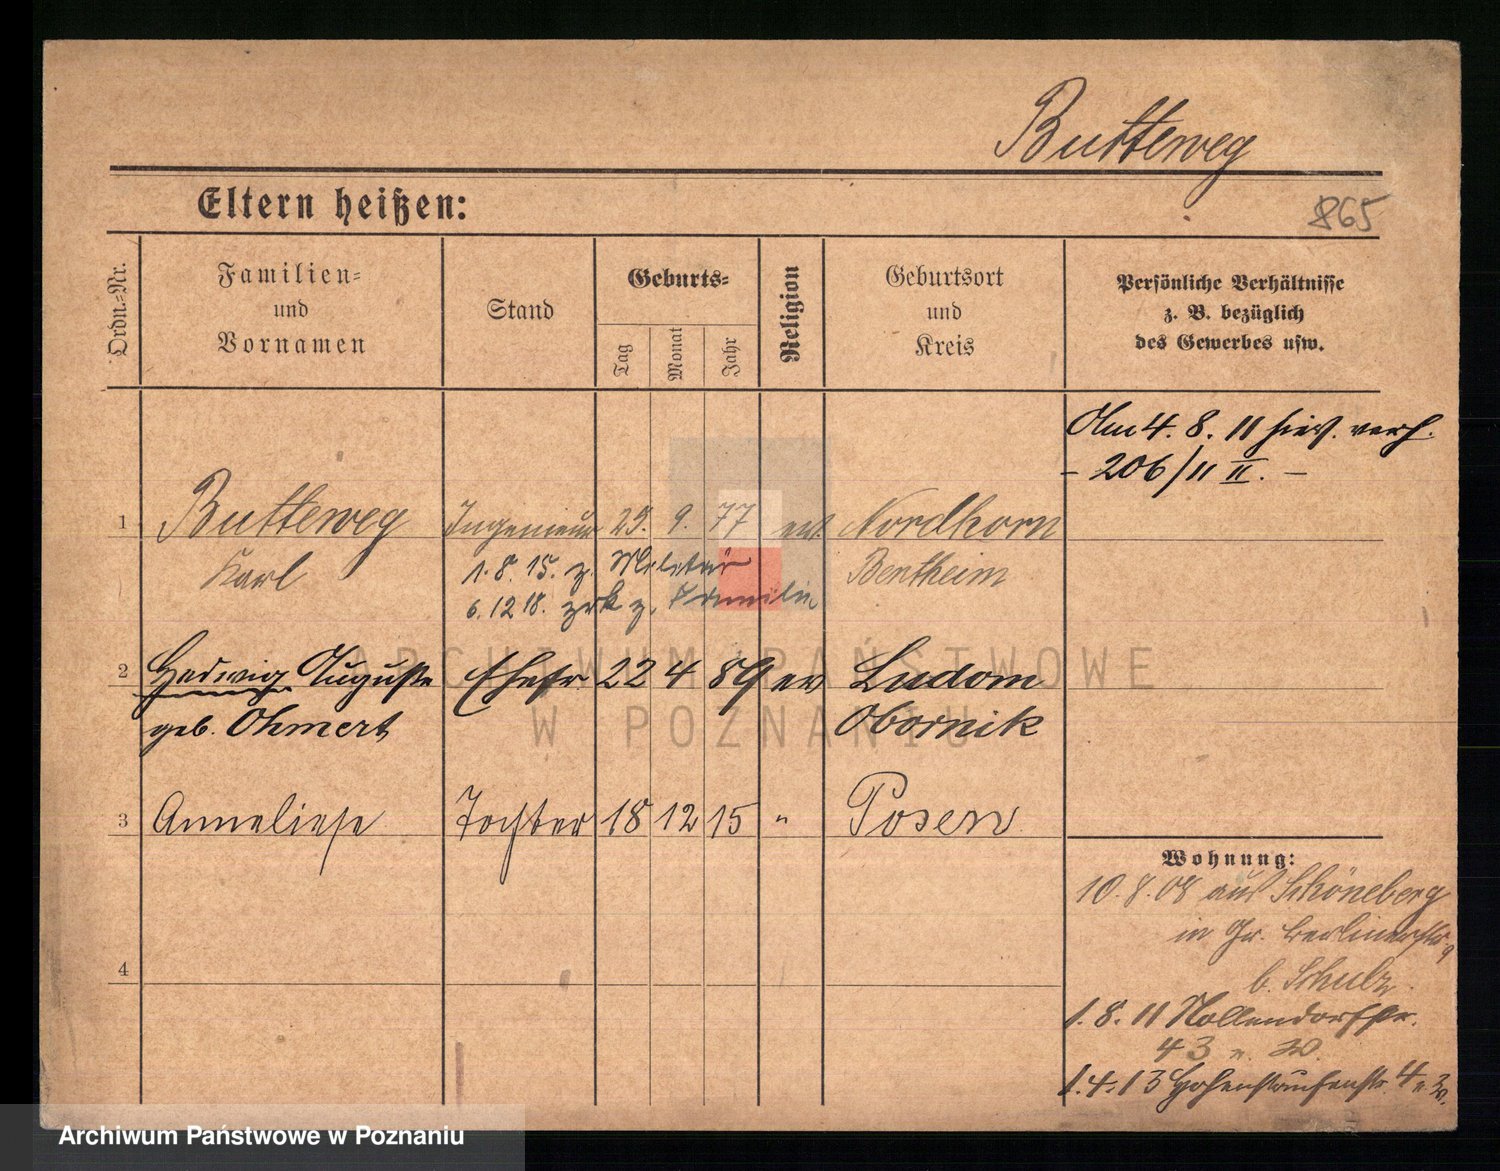 Butteweg
Eltern heißen:
865
Ordn.=Nr.
Familien=
und
Vornamen
Stand
Geburts=
Tag
Monat
Jahr
Religion
Geburtsort
und
Kreis
Persönliche Verhältnisse
z. B. bezüglich
des Gewerbes usw.
Am 4. 8. 11 hier verh.
- 206/11 II. -
1 Butteweg Ingenieur 29. 9. 77 ev. Nordhorn
Karl 1. 8. 15. z. Militär Bentheim
6. 12 18. zrk z. Familie
ARCHIWUM PAŃSTWOWE
W POZNANIU
2 Hedwig Auguste Ehefr 22 4 89 ev Ludom
geb. Ohmert Obornik
3 Anneliese Tochter 18 12 15 " Posen
4
Wohnung:
10. 8. 08 aus Schöneberg
in Gr. Berlinerstr. 9
b. Schulz.
1. 8. 11 Nollendorfstr.
43 n. W.
1. 4. 13 Hohenstaufenstr. 4
Archiwum Państwowe w Poznaniu